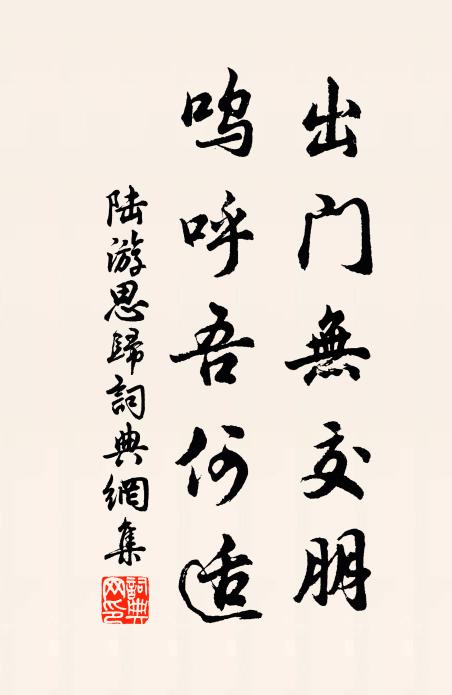 出門無交朋
嗚呼吾何适
陸游思歸詞典網集
詞典网印